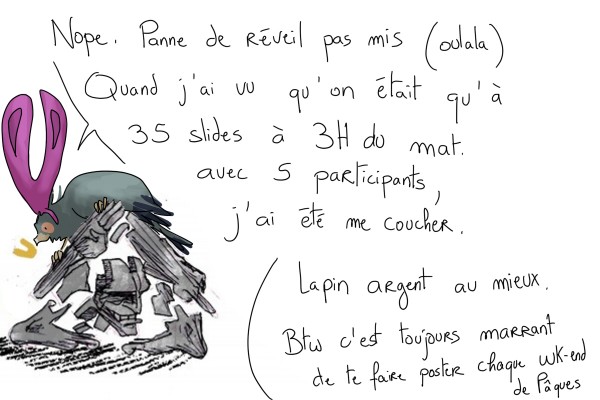 Nope. Panne de réveil pas mis (oulala)
Quand j'ai vu qu'on était qu'à
35 slides à 3H du mat.
avec 5 participants,
j'ai été me coucher.
Lapin argent au mieux.
Btw c'est toujours marrant
de te faire poster chaque wk-end
de Pâques